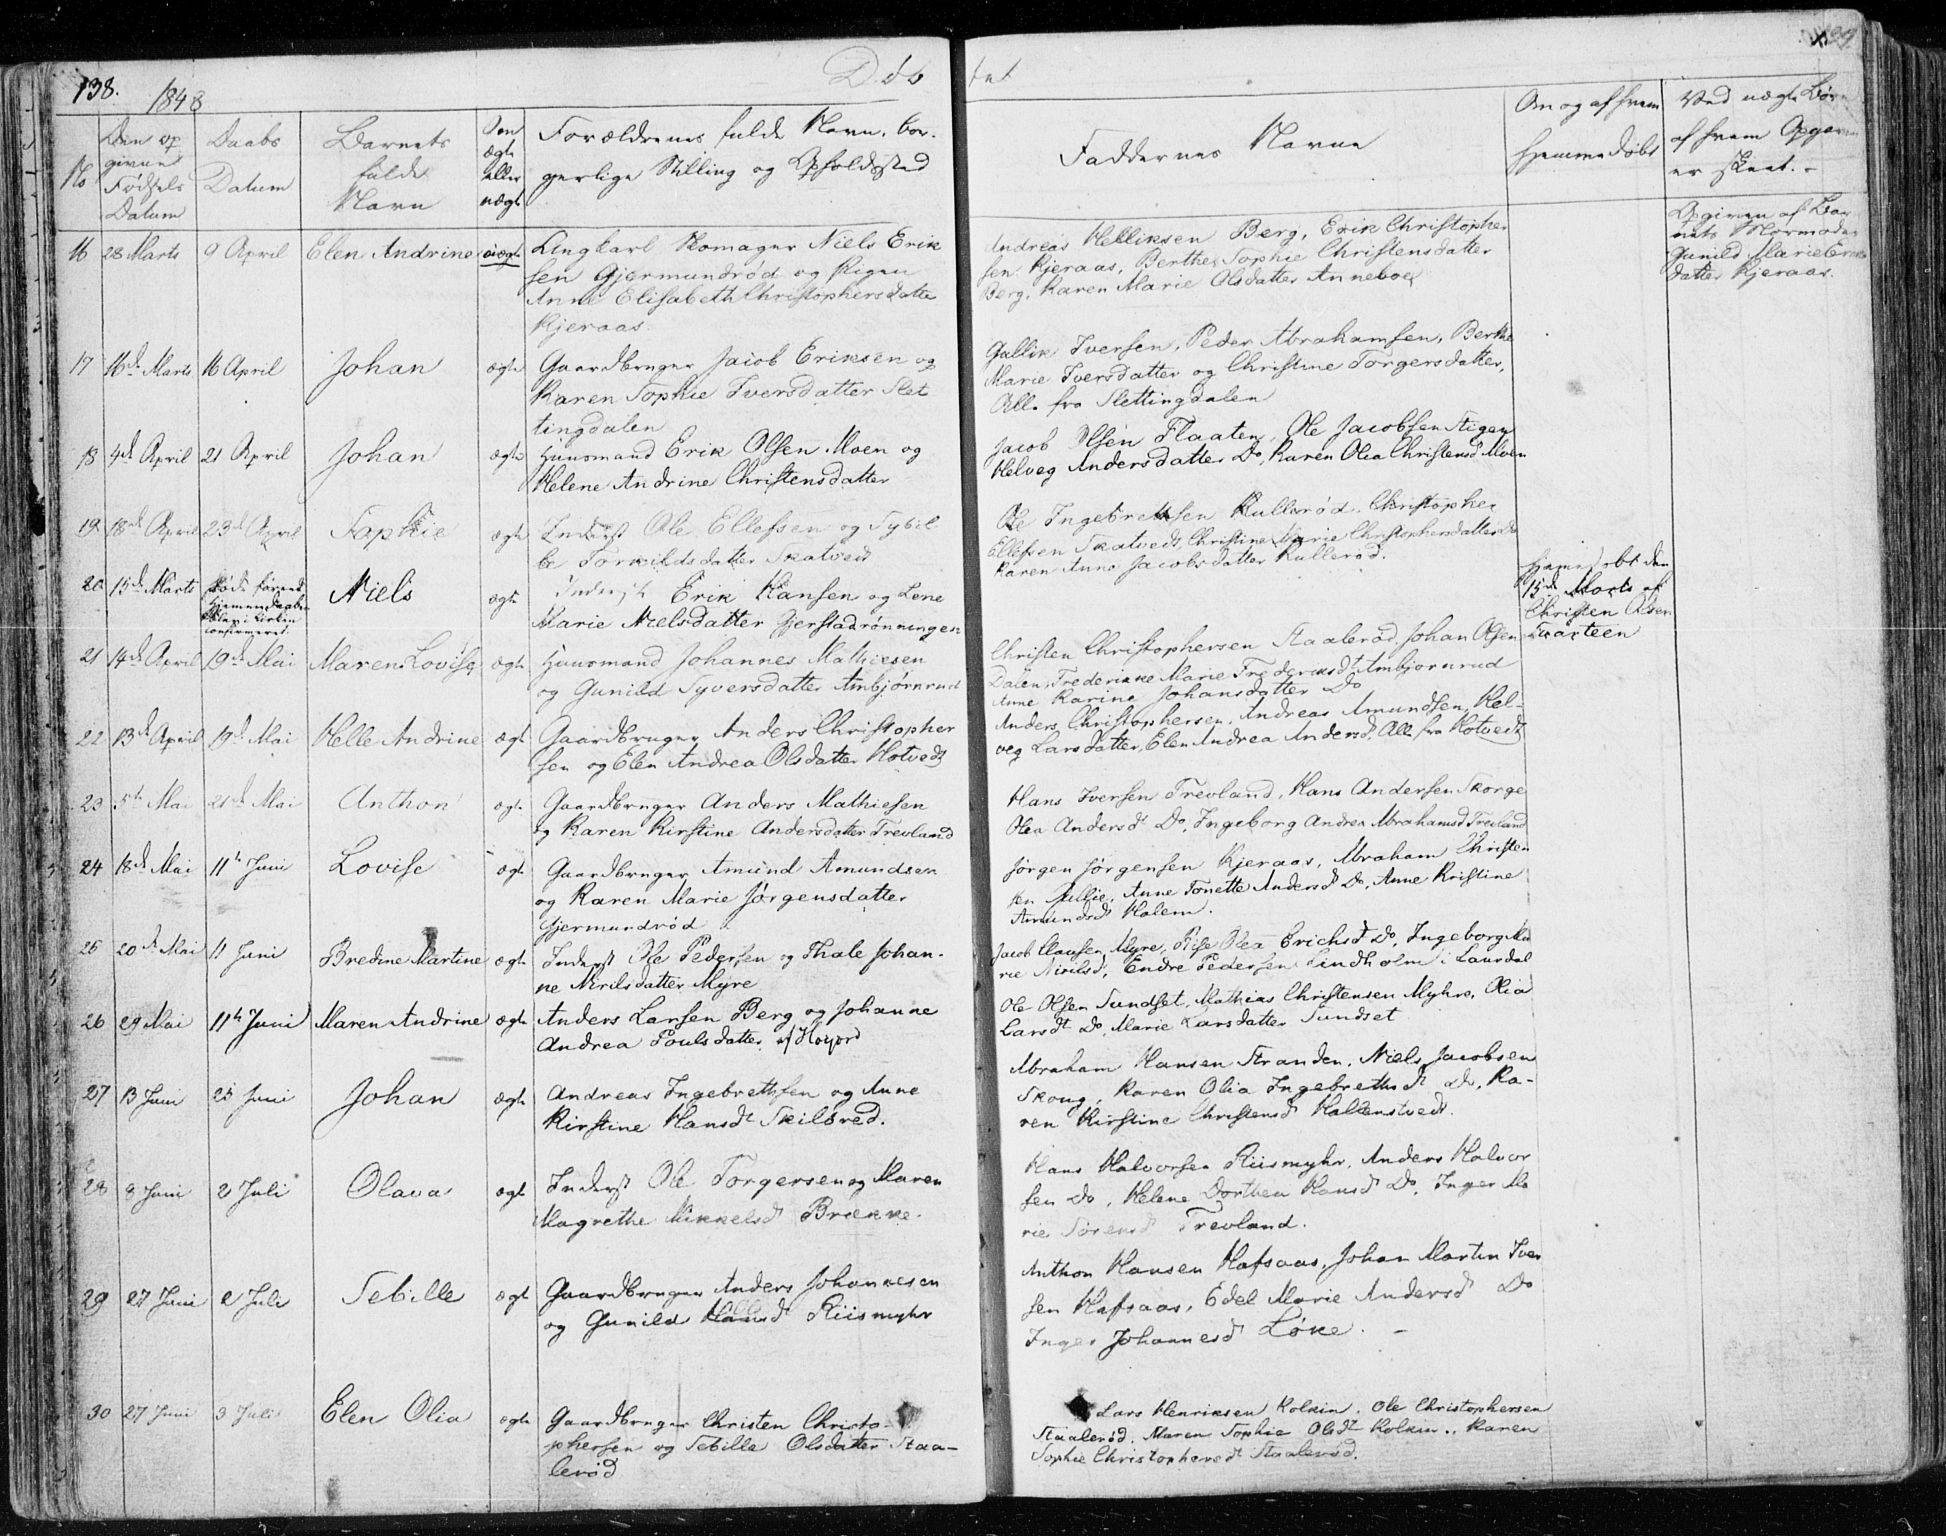 138.
1848
Døb
tet
139
No
Den op
givne
Fødsels
Datum
Daabs
Datum
Barnets
fulde
Navn
Om
ægte
eller
uægte
Forældrenes fulde Navn, bor-
gerlige Stilling og Opholdssted
Faddernes Navne
Om og af hvem
hjemmedøbt
Ved uægte Børn
af hvem Opgaven
er skeet.
16 28 Marts 9 April Elen Andrine uægt
Ungkarl Skomager Niels Erik
sen Gjermundrød og Pigen
Anne Elisabeth Christophersdatter
Kjeraas.
Andreas Helliksen Berg, Erik Christopher
sen Kjeraas, Berthe Sophie Christensdatter
Berg, Karen Marie Olsdatter Anneboe
Opgiven af Bar
nets Mormoder
Gunild Marie Eriks
datter Kjeraas.
17 16de Marts 16 April Johan ægte
Gaardbruger Jacob Eriksen og
Karen Sophie Iversdatter Slet
tingdalen
Gullik Iversen, Peder Abrahamsen, Berthe
Marie Iversdatter og Christine Torgersdatter,
Alle fra Slettingdalen
18 4de April 21 April Johan ægte
Huusmand Erik Olsen Moen og
Helene Andrine Christensdatter
Jacob Olsen Flaaten, Ole Jacobsen Stigen
Helveg Andersdatter Do, Karen Olea Christensd Moen
19 18de April 23de April Sophie ægte
Inderst Ole Ellefsen og Sybil
le Torkildsdatter Skatvedt
Ole Ingebretsen Kullerød, Christopher
Ellefsen Skatvedt, Christine Marie Christophersdatter Do
Karen Anne Jacobsdatter Kullerød.
20 15de Marts
Hjemmedaaben
i Kirken
confirmeret
Niels ægte
Inderst Erik Hansen og Lene
Marie Nielsdatter Gjerstadrønningen
Hjemmedøbt den
15de Marts af
Christen Olsen
Svarteen
21 14de April 19de Mai Maren Lovise ægte
Huusmand Johannes Mathiesen
og Gunild Syversdatter Ambjørnrud
Christen Christophersen Staalerød, Johan Olsen
Dalen, Frederikke Marie Frederiksdt Ambjørnrud
Anne Karine Johansdatter Do
22 13de April 19de Mai Helle Andrine ægt
Gaardbruger Anders Christopher
sen og Elen Andrea Olsdatter Hotvedt
Anders Christophersen, Andreas Amundsen, Hel-
veg Larsdatter, Elen Andrea Andersdt, Alle fra Hotvedt
23 5te Mai 21de Mai Anthon ægte
Gaardbruger Anders Mathiesen
og Karen Kirstine Andersdatter Trevland
Hans Iversen Trevland, Hans Andersen Skorge
Olea Andersdt Do, Ingeborg Andrea Abrahamsd Trevland
24 18de Mai 11te Juni Lovise ægte
Gaardbruger Amund Amundsen
og Karen Marie Jørgensdatter
Gjermundrød
Jørgen Jørgensen Kjeraas, Abraham Christen
sen Jullie, Anne Tonette Andersdt Do, Anne Kristine
Amundsdt Holem.
25 20de Mai 11 Juni Bredine Martine ægte
Inderst Ole Pedersen og Thale Johan-
ne Nirilsdatter Myre
Jacob Clausen Myre, Olea Erichsdt Do, Ingeborg Ma
rie Nirilsdt, Endre Pedersen Lindholm i Laurdal
26 29 Mai 11te Juni Maren Andrine ægte
Anders Larsen Berg og Johanne
Andrea Poulsdatter af Høijord
Ole Olsen Sundset, Mathias Christensen Myhre, Olia
Larsdt Do, Marie Larsdatter Sundset
27 13 Juni 25 Juni Johan ægte
Andreas Ingebrethsen og Anne
Kirstine Hansdt Skilbred.
Abraham Hansen Stranden, Niels Jacobsen
Skoug, Karen Olia Ingebrethsdt Do, Ka-
ren Kirstine Christensdt Hallenstvedt.
28 8 Juni 2 Juli Olava ægte
Inderst Ole Torgersen og Maren
Magrethe Mikkelsdt Brække.
Hans Halvorsen Riismyhr, Anders Halvor
sen Do, Helene Dorthea Hansdt Do, Inger Ma
rie Sørensdt Trevland.
29 27 Juni 2 Juli Sebille ægt
Gaardbruger Anders Johannesen
og Gunild Hansdt Riismyhr
Anthon Hansen Hafsaas, Johan Martin Iver
sen Hafsaas, Edel Marie Andersdt Do
Inger Johannesdt Løke.
30 27 Juni 3 Juli Elen Olia ægte
Gaardbruger Christen Christo-
phersen og Sebille Olsdatter Staa-
lerød
Lars Henriksen Kolkin, Ole Christophersen
Staalerød, Maren Sophie Olsdt Kolkin, Karen
Sophie Christophersdt Staalerød.